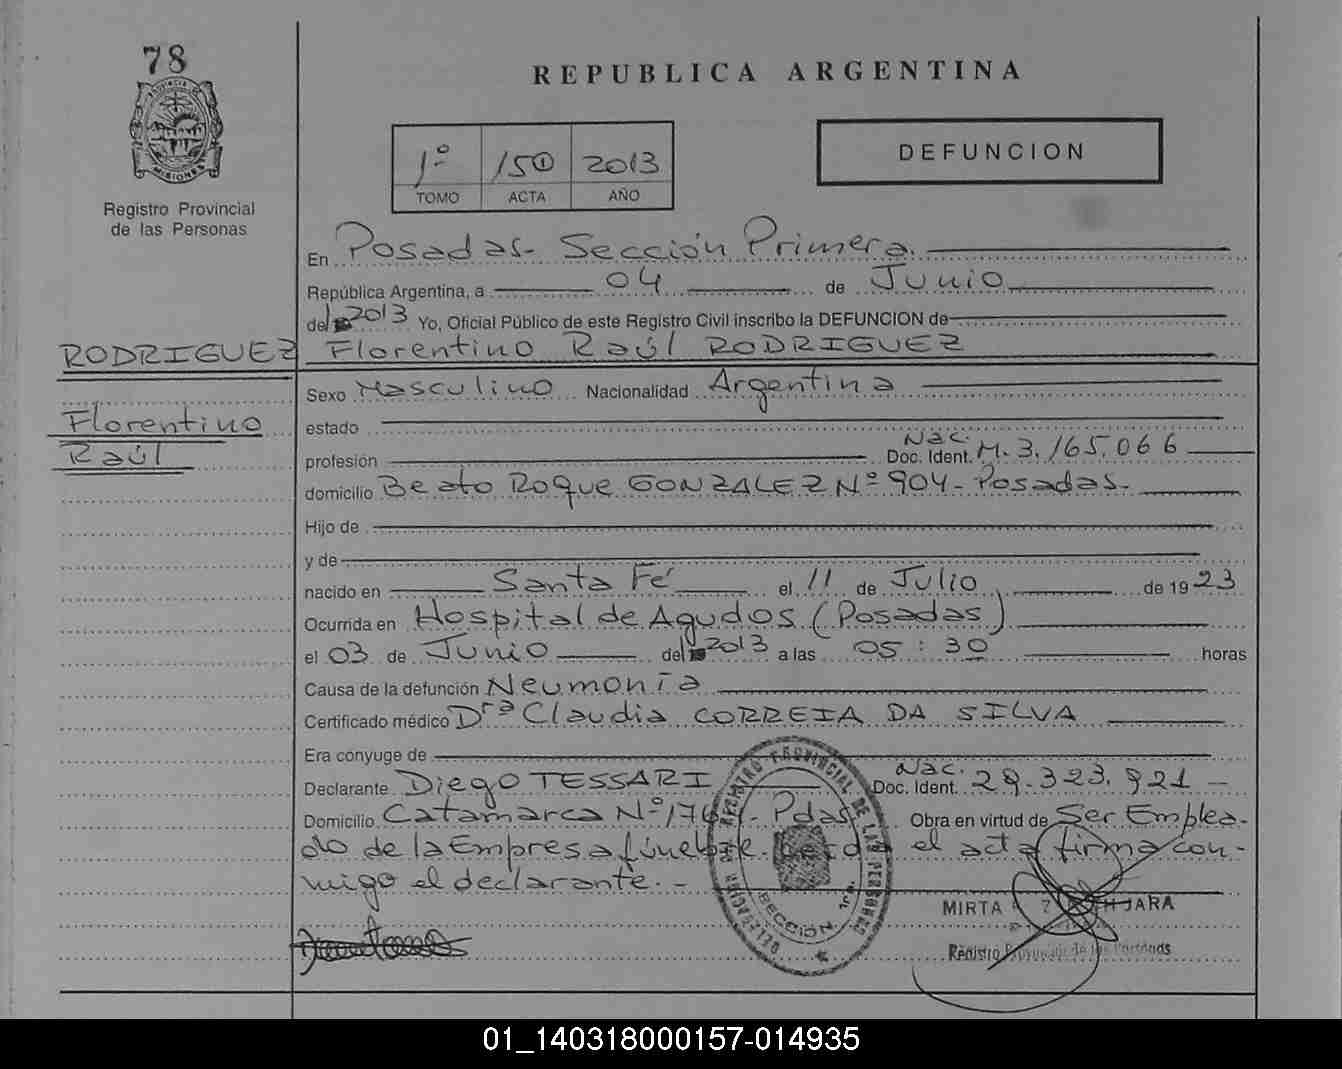 78
REPUBLICA ARGENTINA
PROVINCIA DE
MISIONES
Registro Provincial
de las Personas
1º 150 2013
TOMO ACTA AÑO
DEFUNCION
En Posadas- Sección Primera.
República Argentina, a 04 de Junio
del 2013 Yo, Oficial Público de este Registro Civil inscribo la DEFUNCION de
RODRIGUEZ Florentino Raúl RODRIGUEZ
Sexo Masculino Nacionalidad Argentina
Florentino
Raúl
estado
profesión Doc. Ident. Nac. M. 3.165.066
domicilio Beato Roque GONZALEZ Nº 904- Posadas-
Hijo de
y de
nacido en Santa Fé el 11 de Julio de 1923
Ocurrida en Hospital de Agudos (Posadas)
el 03 de Junio del 2013 a las 05:30 horas
Causa de la defunción Neumonía
Certificado médico Drª Claudia CORREIA DA SILVA
Era cónyuge de
Declarante Diego TESSARI Doc. Ident. Nac. 29.323.921-
Domicilio Catamarca Nº Pdas Obra en virtud de Ser Emplea-
do de la Empresa fúnebre. el acta firma con-
migo el declarante.-
DELEGACION REGISTRO PROVINCIAL DE LAS PERSONAS
SECCIÓN 1ra.
MIRTA JARA
Registro Provincial de las Personas
01_140318000157-014935